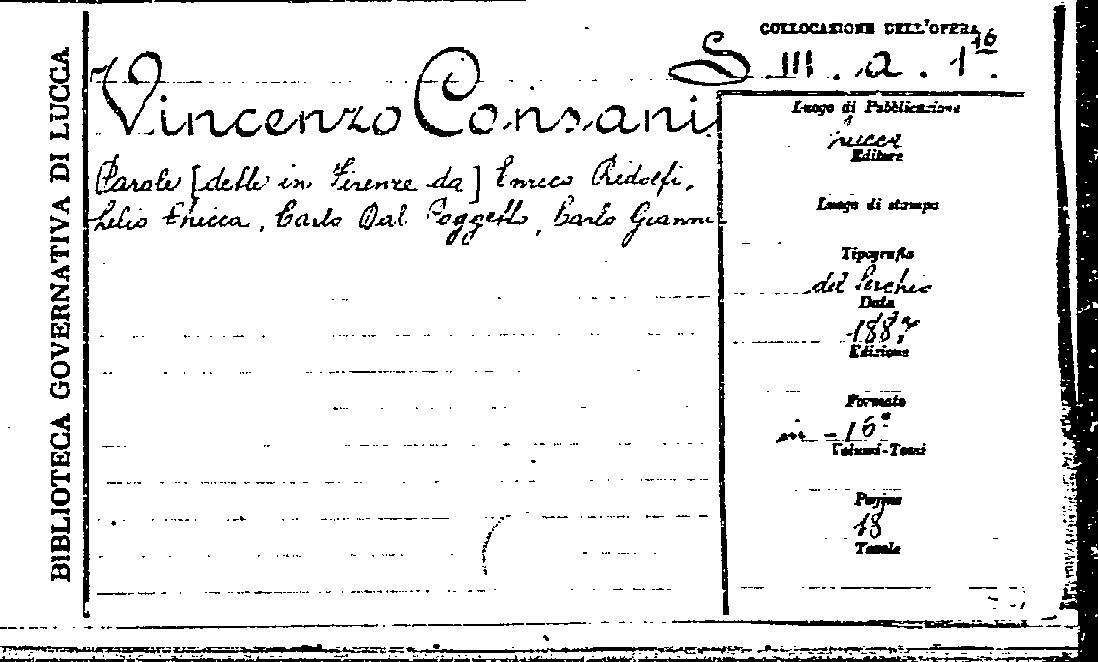 BIBLIOTECA GOVERNATIVA DI LUCCA
COLLOCAZIONE DELL'OPERA
S III. a. 1.16
Vincenzo Consani
Parole [dette in Firenze da] Enrico Ridolfi,
Carlo Dal Poggetto, Carlo Gianni
Luogo di Pubblicazione
Lucca
Editore
Luogo di stampa
Tipografia
del Serchio
Data
Edizione
Formato
in - 16°
Volumi-Tomi
Pagine
18
Tavole